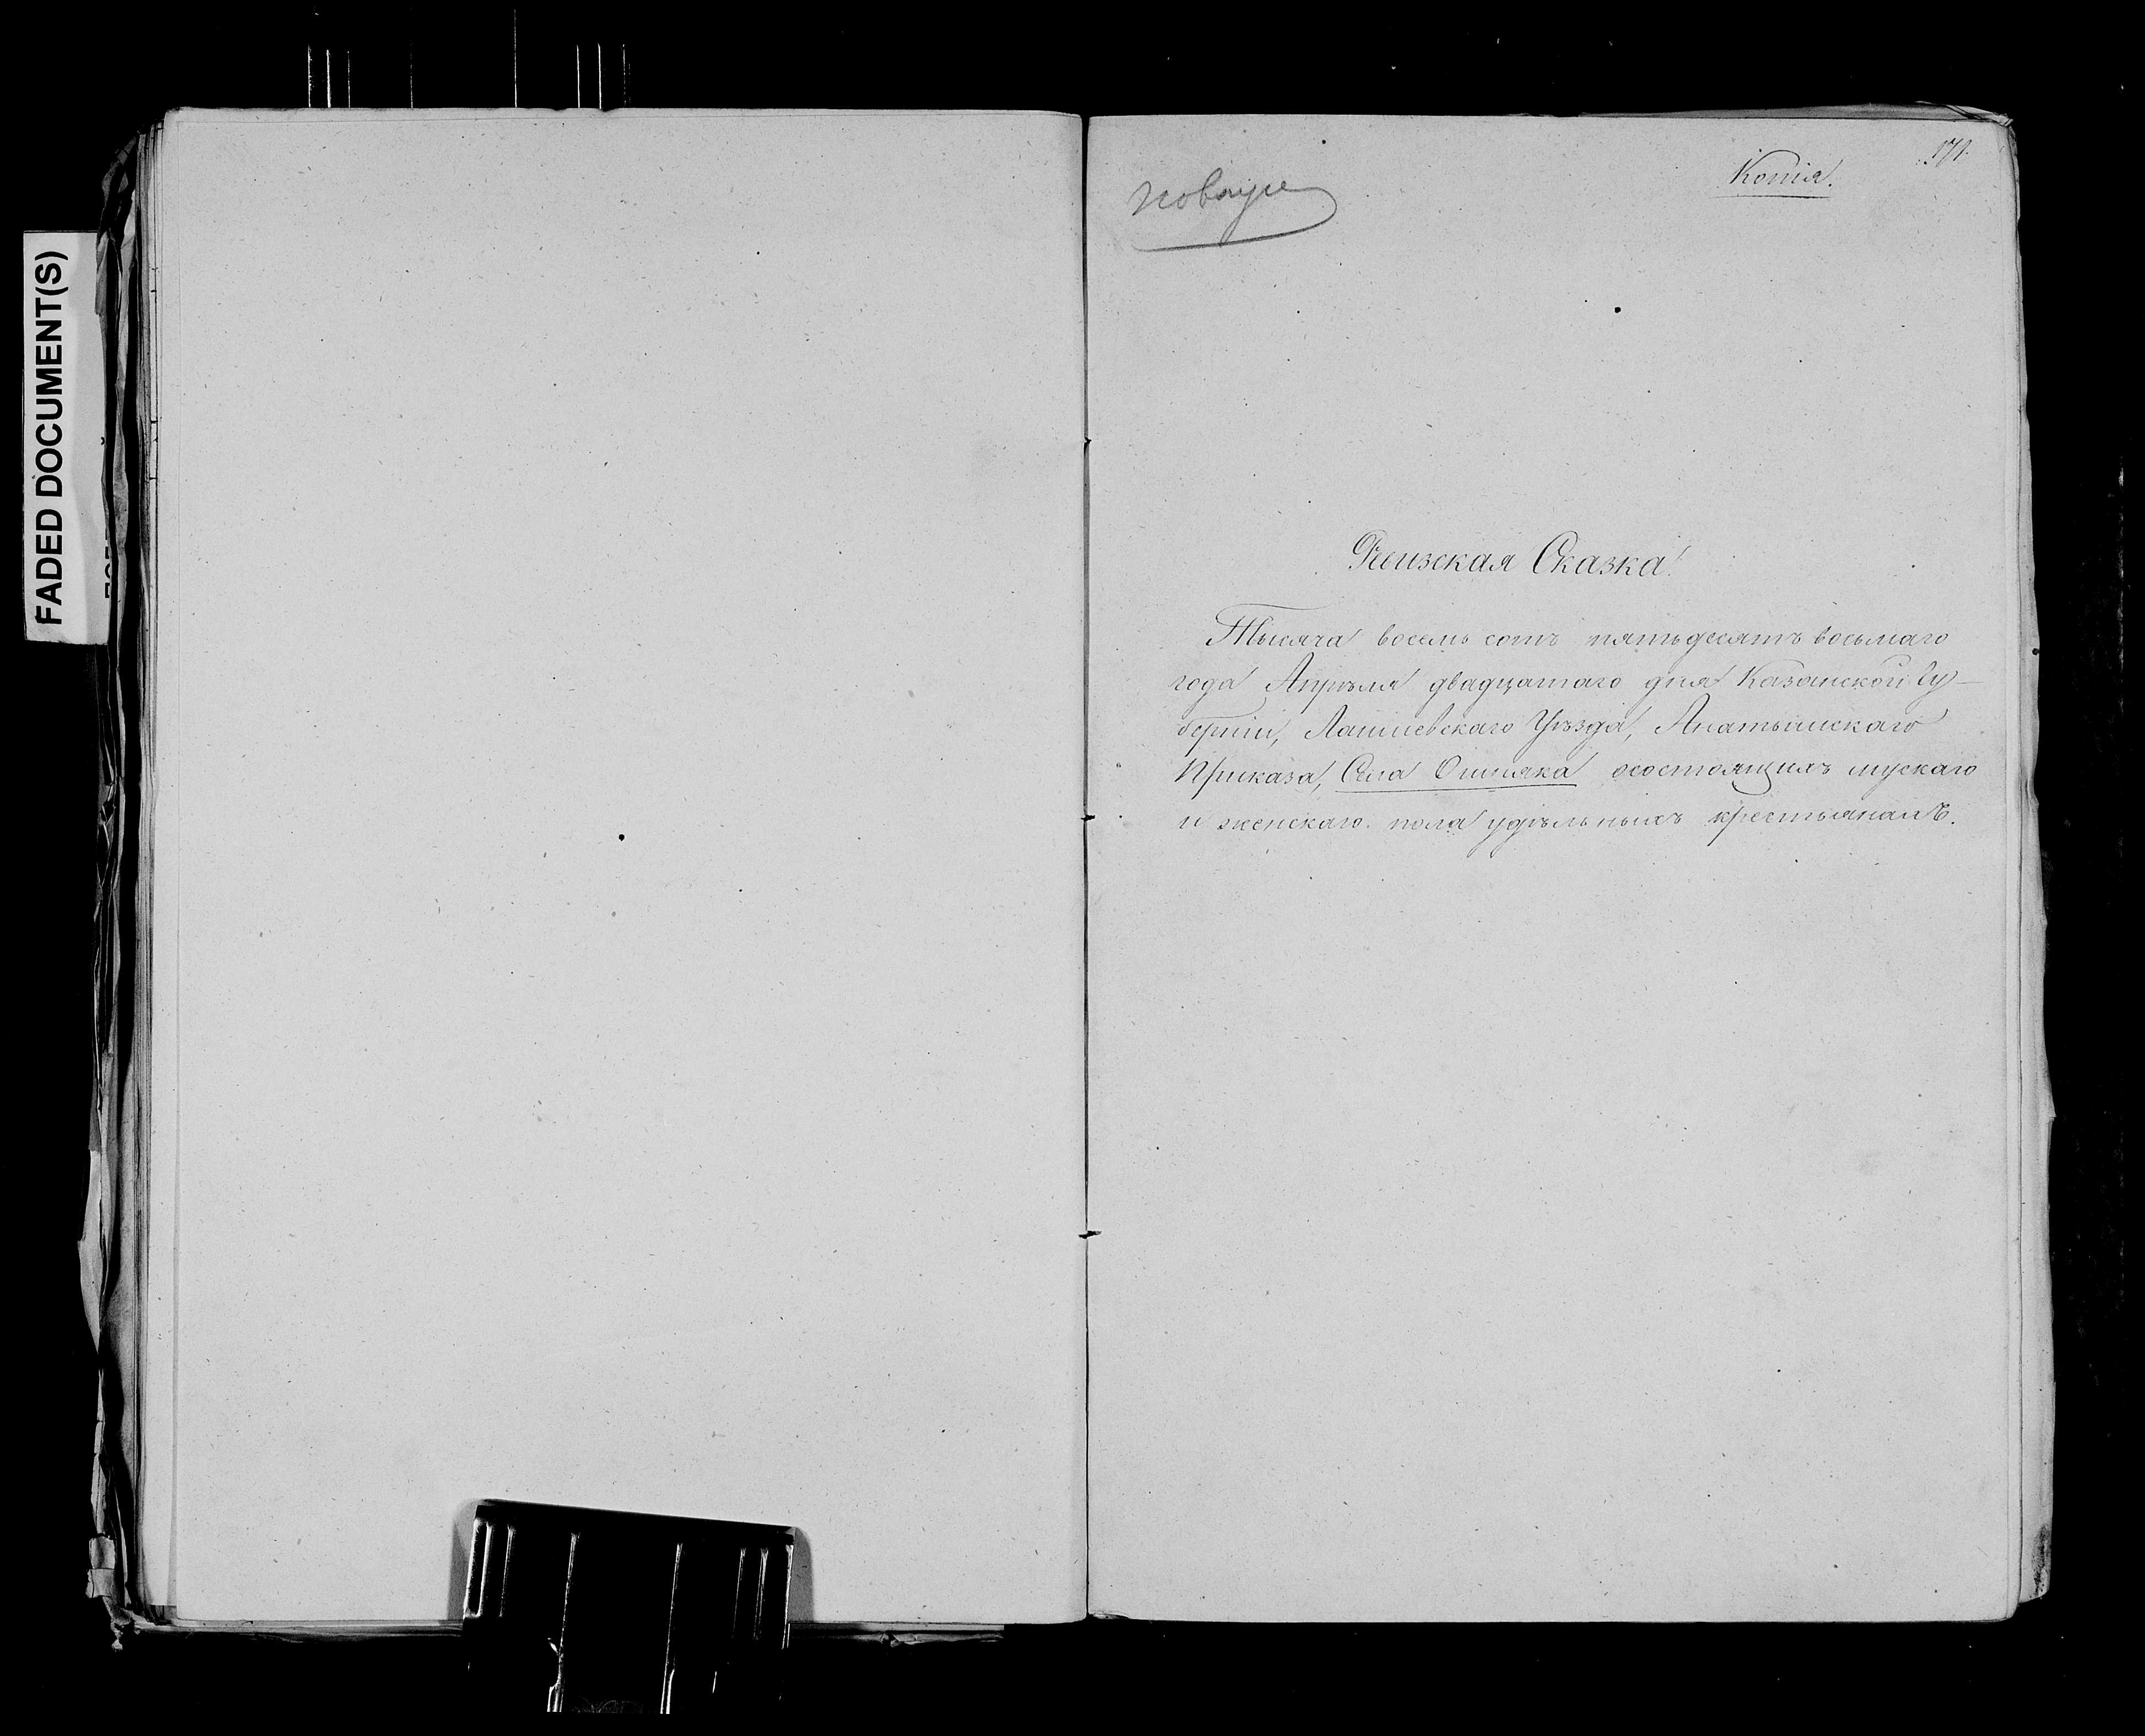 FADED DOCUMENT(S)
171.
Копія.
Ревизская Сказка
Тысяча восемь сотъ пятьдесятъ восьмаго
года Апрѣля двадцатаго дня Казанской Гу-
берніи, Лаишевскаго Уѣзда, Анатышскаго
Приказа, Села Ошняка осостоящихъ мускаго
и женскаго пола удѣльныхъ крестьянахъ.